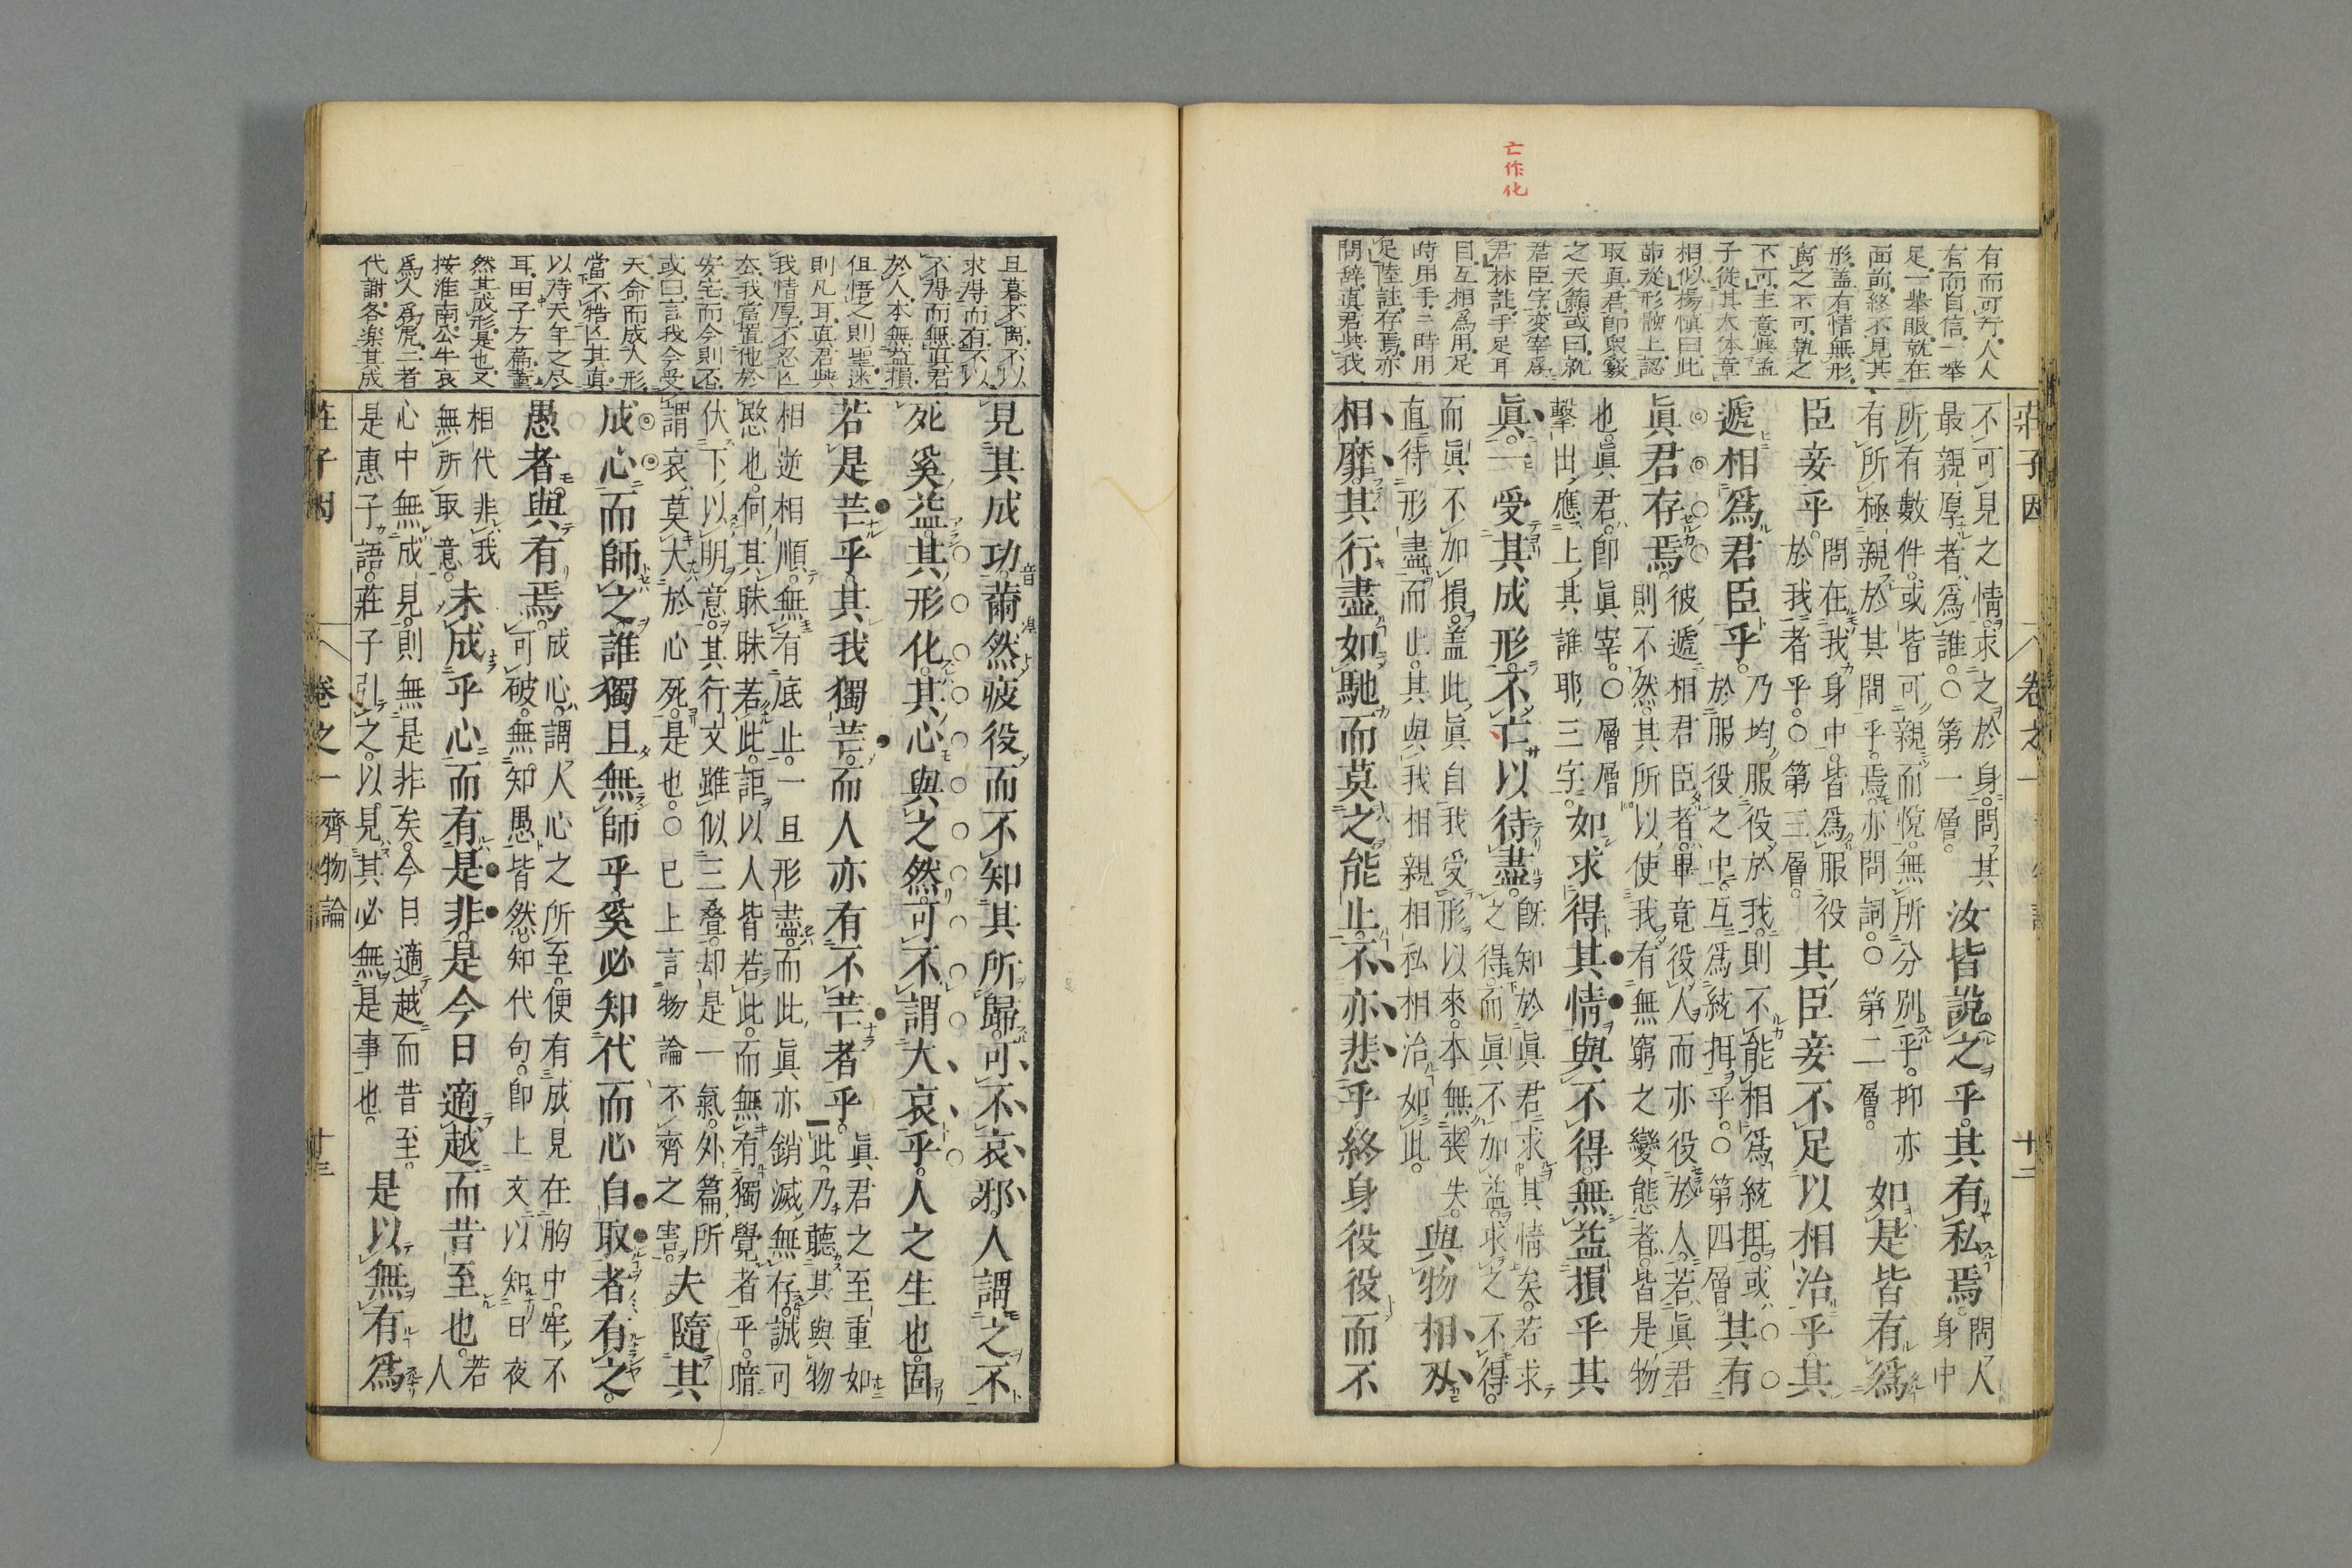 亡作化
有而可行人人
有而自信一舉
足一舉眼就在
面前終不見其
形蓋有情無形
离之不可執之
不可主意與孟
子從其大体章
相似楊慎曰此
節從形骸上認
取真君卽與竅
之天籟或曰就
君臣字変宰爲
君林註手足耳
目互相爲用足
時用手二時用
足陸註存焉亦
問辞真君與我
莊子因 卷之一 十二
不可見之情求之於身問其
最親厚者爲誰○第一層
汝皆說之乎其有私焉
問人
身中
所有數件或皆可親而悅無所分別乎抑亦
有所極親於其間乎焉亦問詞○第二層
如是皆有爲
臣妾乎
問在我身中皆爲服役
於我者乎○第三層
其臣妾不足以相治乎其
遞相爲君臣乎
乃均服役於我則不能相爲統攝或
於服役之中互爲統攝乎○第四層
其有
眞君存焉
彼遞相君臣者畢竟役人而亦役於人若眞君
則不然其所以使我有無窮之變態者皆是物
也眞君卽眞宰○層層
擊出應上其誰耶三字
如求得其情與不得無益損乎其
眞一受其成形不亡以待盡
旣知於眞君求其情矣若求
之得而眞不加益求之不得
而眞不加損蓋此眞自我受形以來本無喪失
直待形盡而止其與我相親相私相治如此
與物相刃
相靡其行盡如馳而莫之能止不亦悲乎終身役役而不
且暮不离不以
求得而有不以
不得而無真君
於人本無益損
但悟之則聖迷
則凡耳真君與
我情厚不忍亾
厺我當置他於
安宅而今則否
或曰言我今受
天命而成人形
當不牿亾其真
以待天年之尽
耳田子方篇薰
然其成形是也又
按淮南公牛哀
爲人爲虎二者
代謝各楽其成
見其成功薾然疲役而不知其所歸可不哀邪人謂之不
死奚益其形化其心與之然可不謂大哀乎人之生也固
若是芒乎其我獨芒而人亦有不芒者乎
眞君之至重如
此乃聽其與物
相逆相順無有底止一旦形盡而此眞亦銷滅無存誠可
愍也何其昧昧若此詎以人皆若此而無有獨覺者乎暗
伏下以明意其行文雖似三叠却是一氣外篇所
謂哀莫大於心死是也○已上言物論不齊之害
夫隨其
成心而師之誰獨且無師乎奚必知代而心自取者有之
愚者與有焉
成心謂人心之所至便有成見在胸中牢不
可破無知愚皆然知代句卽上文以知日夜
相代非我
無所取意
未成乎心而有是非是今日適越而昔至也
若
人
心中無成見則無是非矣今日適越而昔至
是惠子語莊子引之以見其必無是事也
是以無有爲
莊子因 卷之一 齊物論 十三